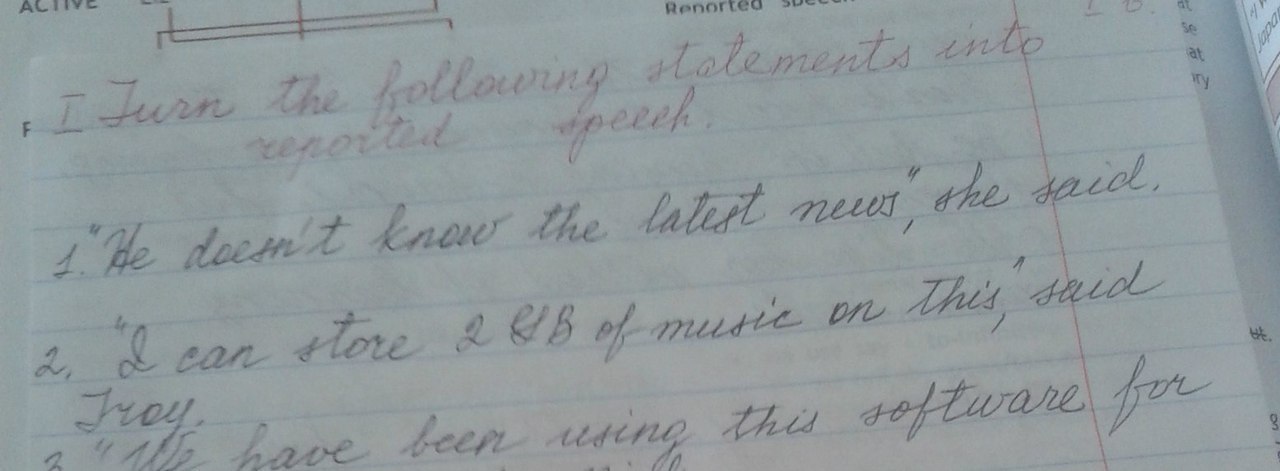 ACTIVE
Reported speech
F
I Turn the following statements into
reported speech.
1. "He doesn't know the latest news", she said.
2. "I can store 2 GB of music on this," said
Troy.
3 "We have been using this software for
at
se
at
ry